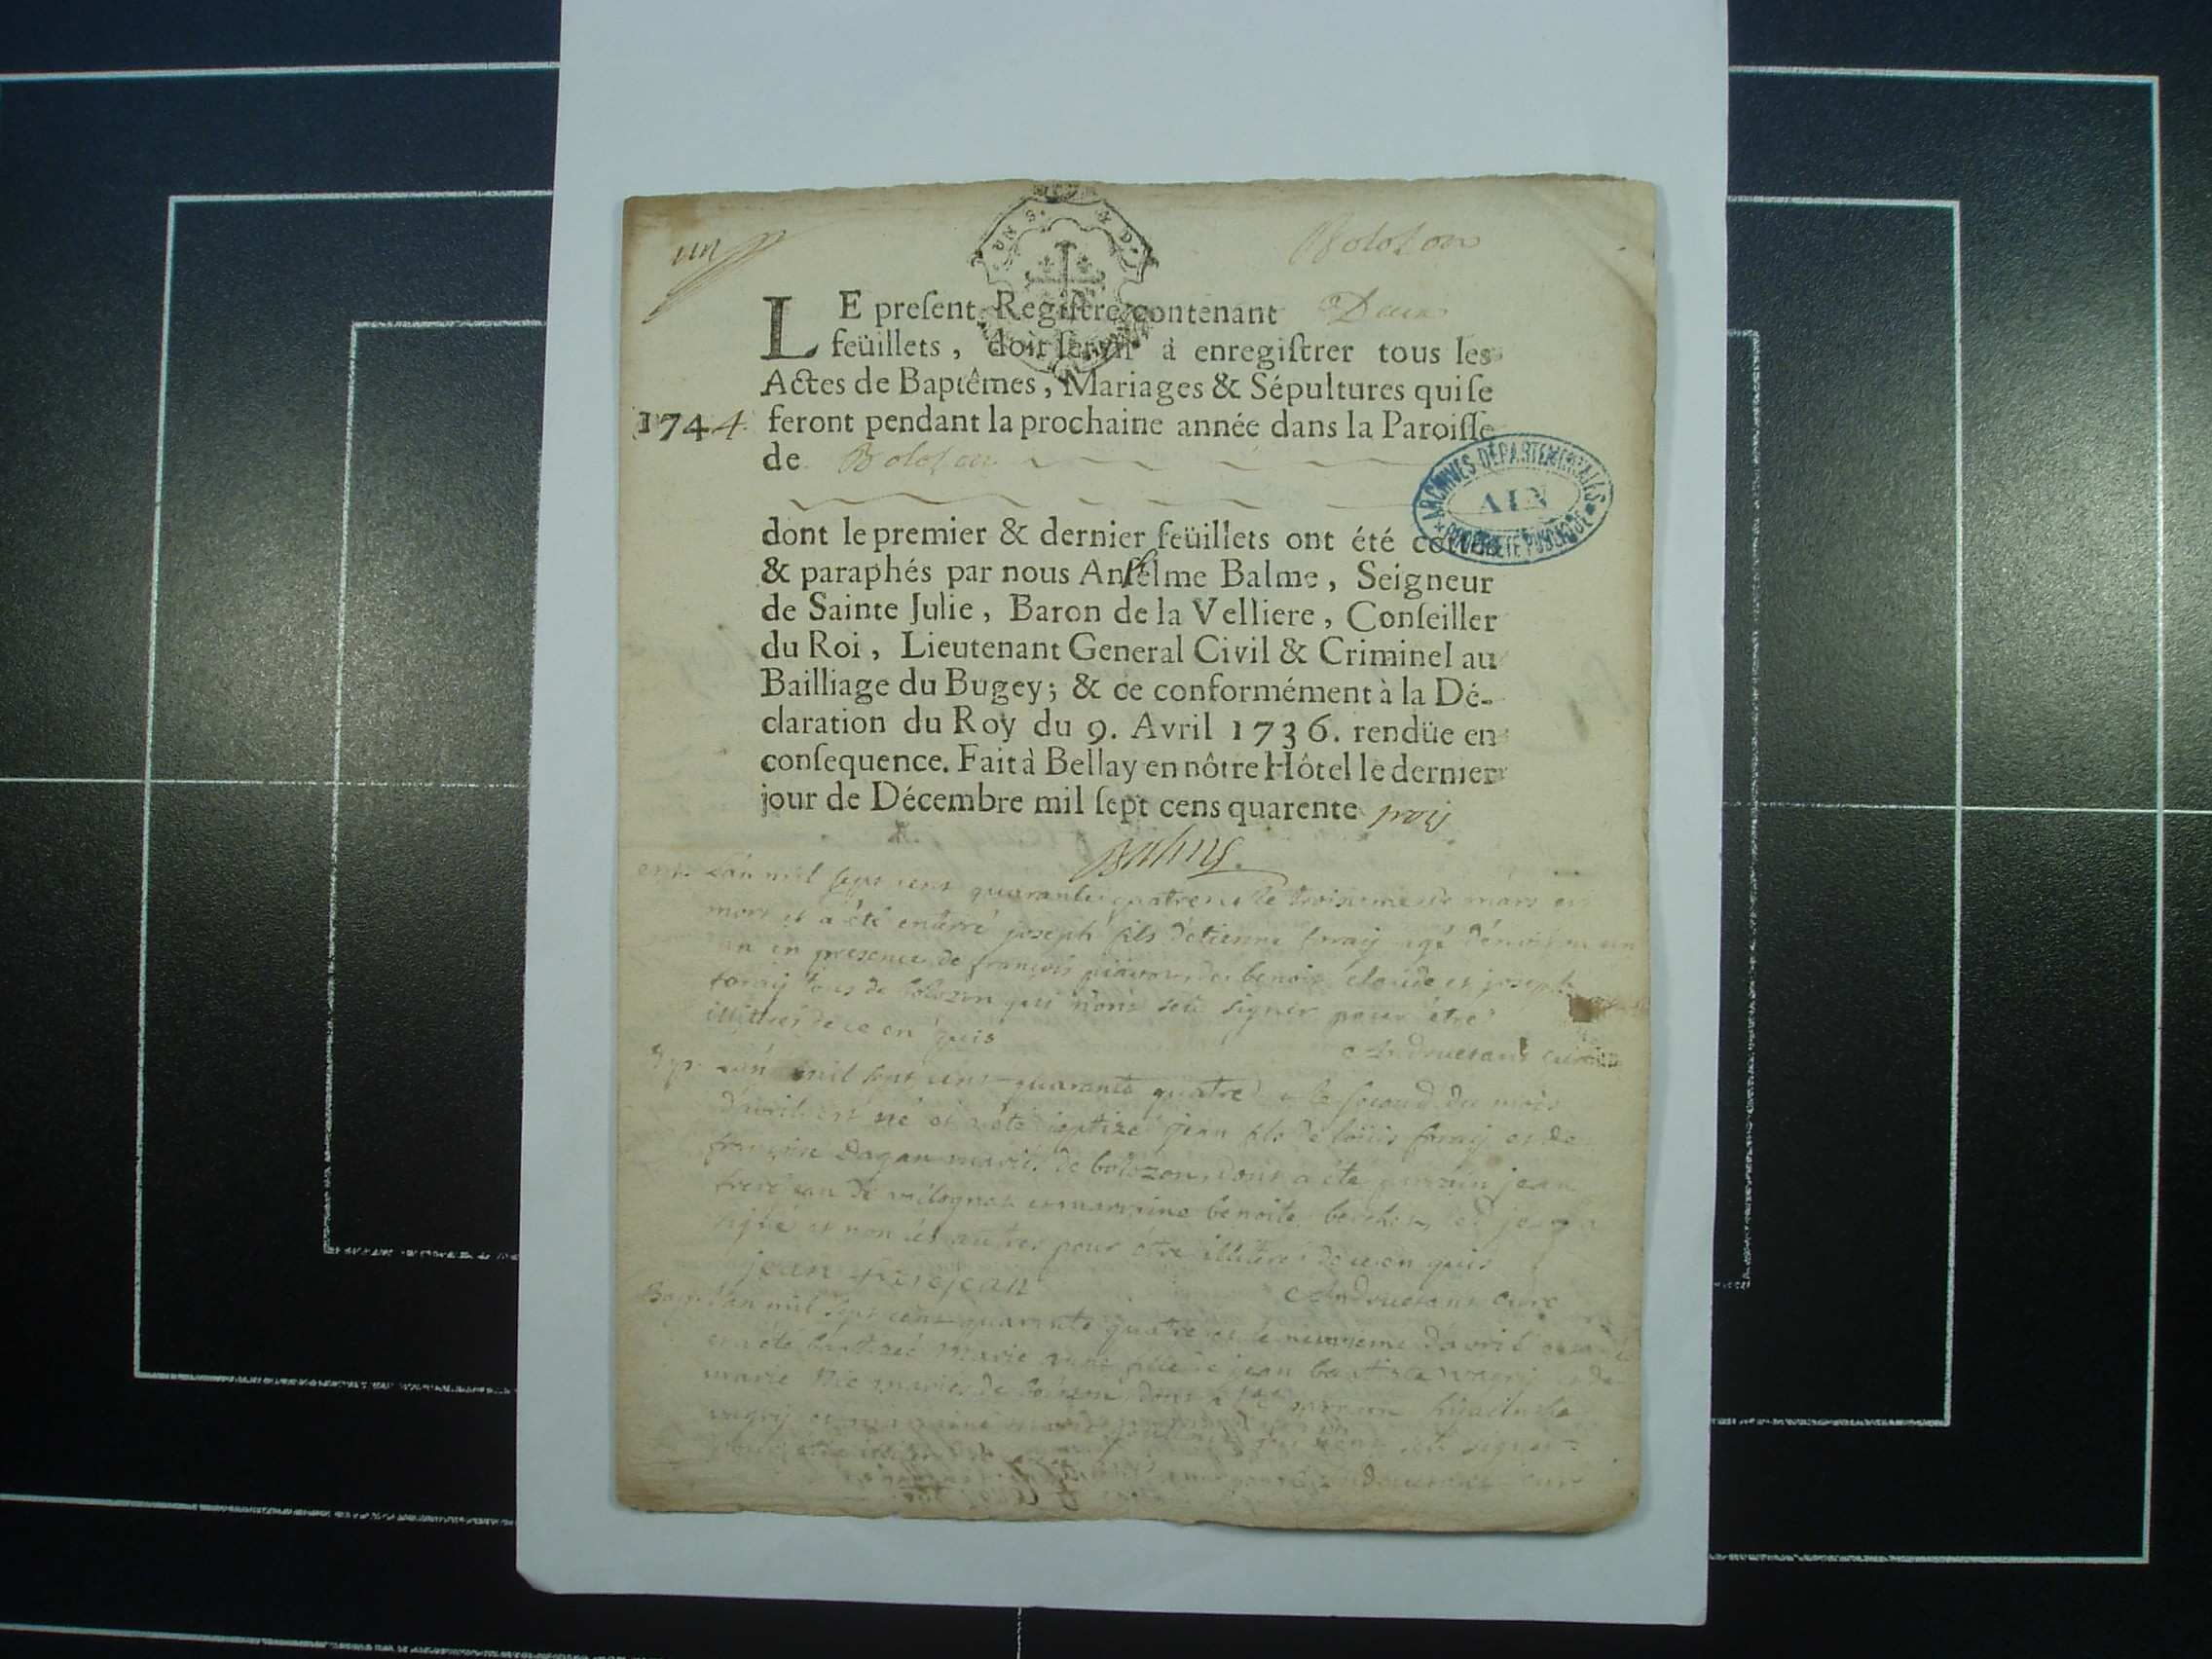 un
Bolozon
LE preſent Regiſtre contenant Deux
feüillets, doit ſervir à enregiſtrer tous les
Actes de Baptêmes, Mariages & Sépultures qui ſe
1744. feront pendant la prochaine année dans la Paroiſſe
de Bolozon
ARCHIVES DÉPARTEMENTALES
AIN
PROPRIÉTÉ PUBLIQUE
dont le premier & dernier feüillets ont été cottés
& paraphés par nous Anſelme Balme, Seigneur
de Sainte Julie, Baron de la Velliere, Conſeiller
du Roi, Lieutenant General Civil & Criminel au
Bailliage du Bugey; & ce conformément à la Dé-
claration du Roy du 9. Avril 1736. rendüe en
conſequence. Fait à Bellay en nôtre Hôtel le dernier
jour de Décembre mil ſept cens quarente trois
Balme.
L'an mil sept cens quarante quatre et le troisieme de mars est
mort et a été enterré joseph fils d'etienne foraij agé d'environ un
an en presence de françois des benoit claude et joseph
foraij tous de bolozon qui n'ont seû signer pour être
illittrés de ce enquis
curé
L'an mil sept cens quarante quatre et le second du mois
d'avril est né et a été baptizé jean fils de loüis foraij et de
françoise Dagan mariés de bolozon, dont a été parrain jean
et marraine benoite led jean a
signé et non les autres pour être illitterés de ce enquis
jean
curé
Bap. L'an mil sept cens quarante quatre et le neuvieme d'avril
et a été baptizée Marie fille de jean baptiste et de
marie mariés de bolozon dont a été parrain hyacinthe
et marraine qui n'ont seû signer
curé